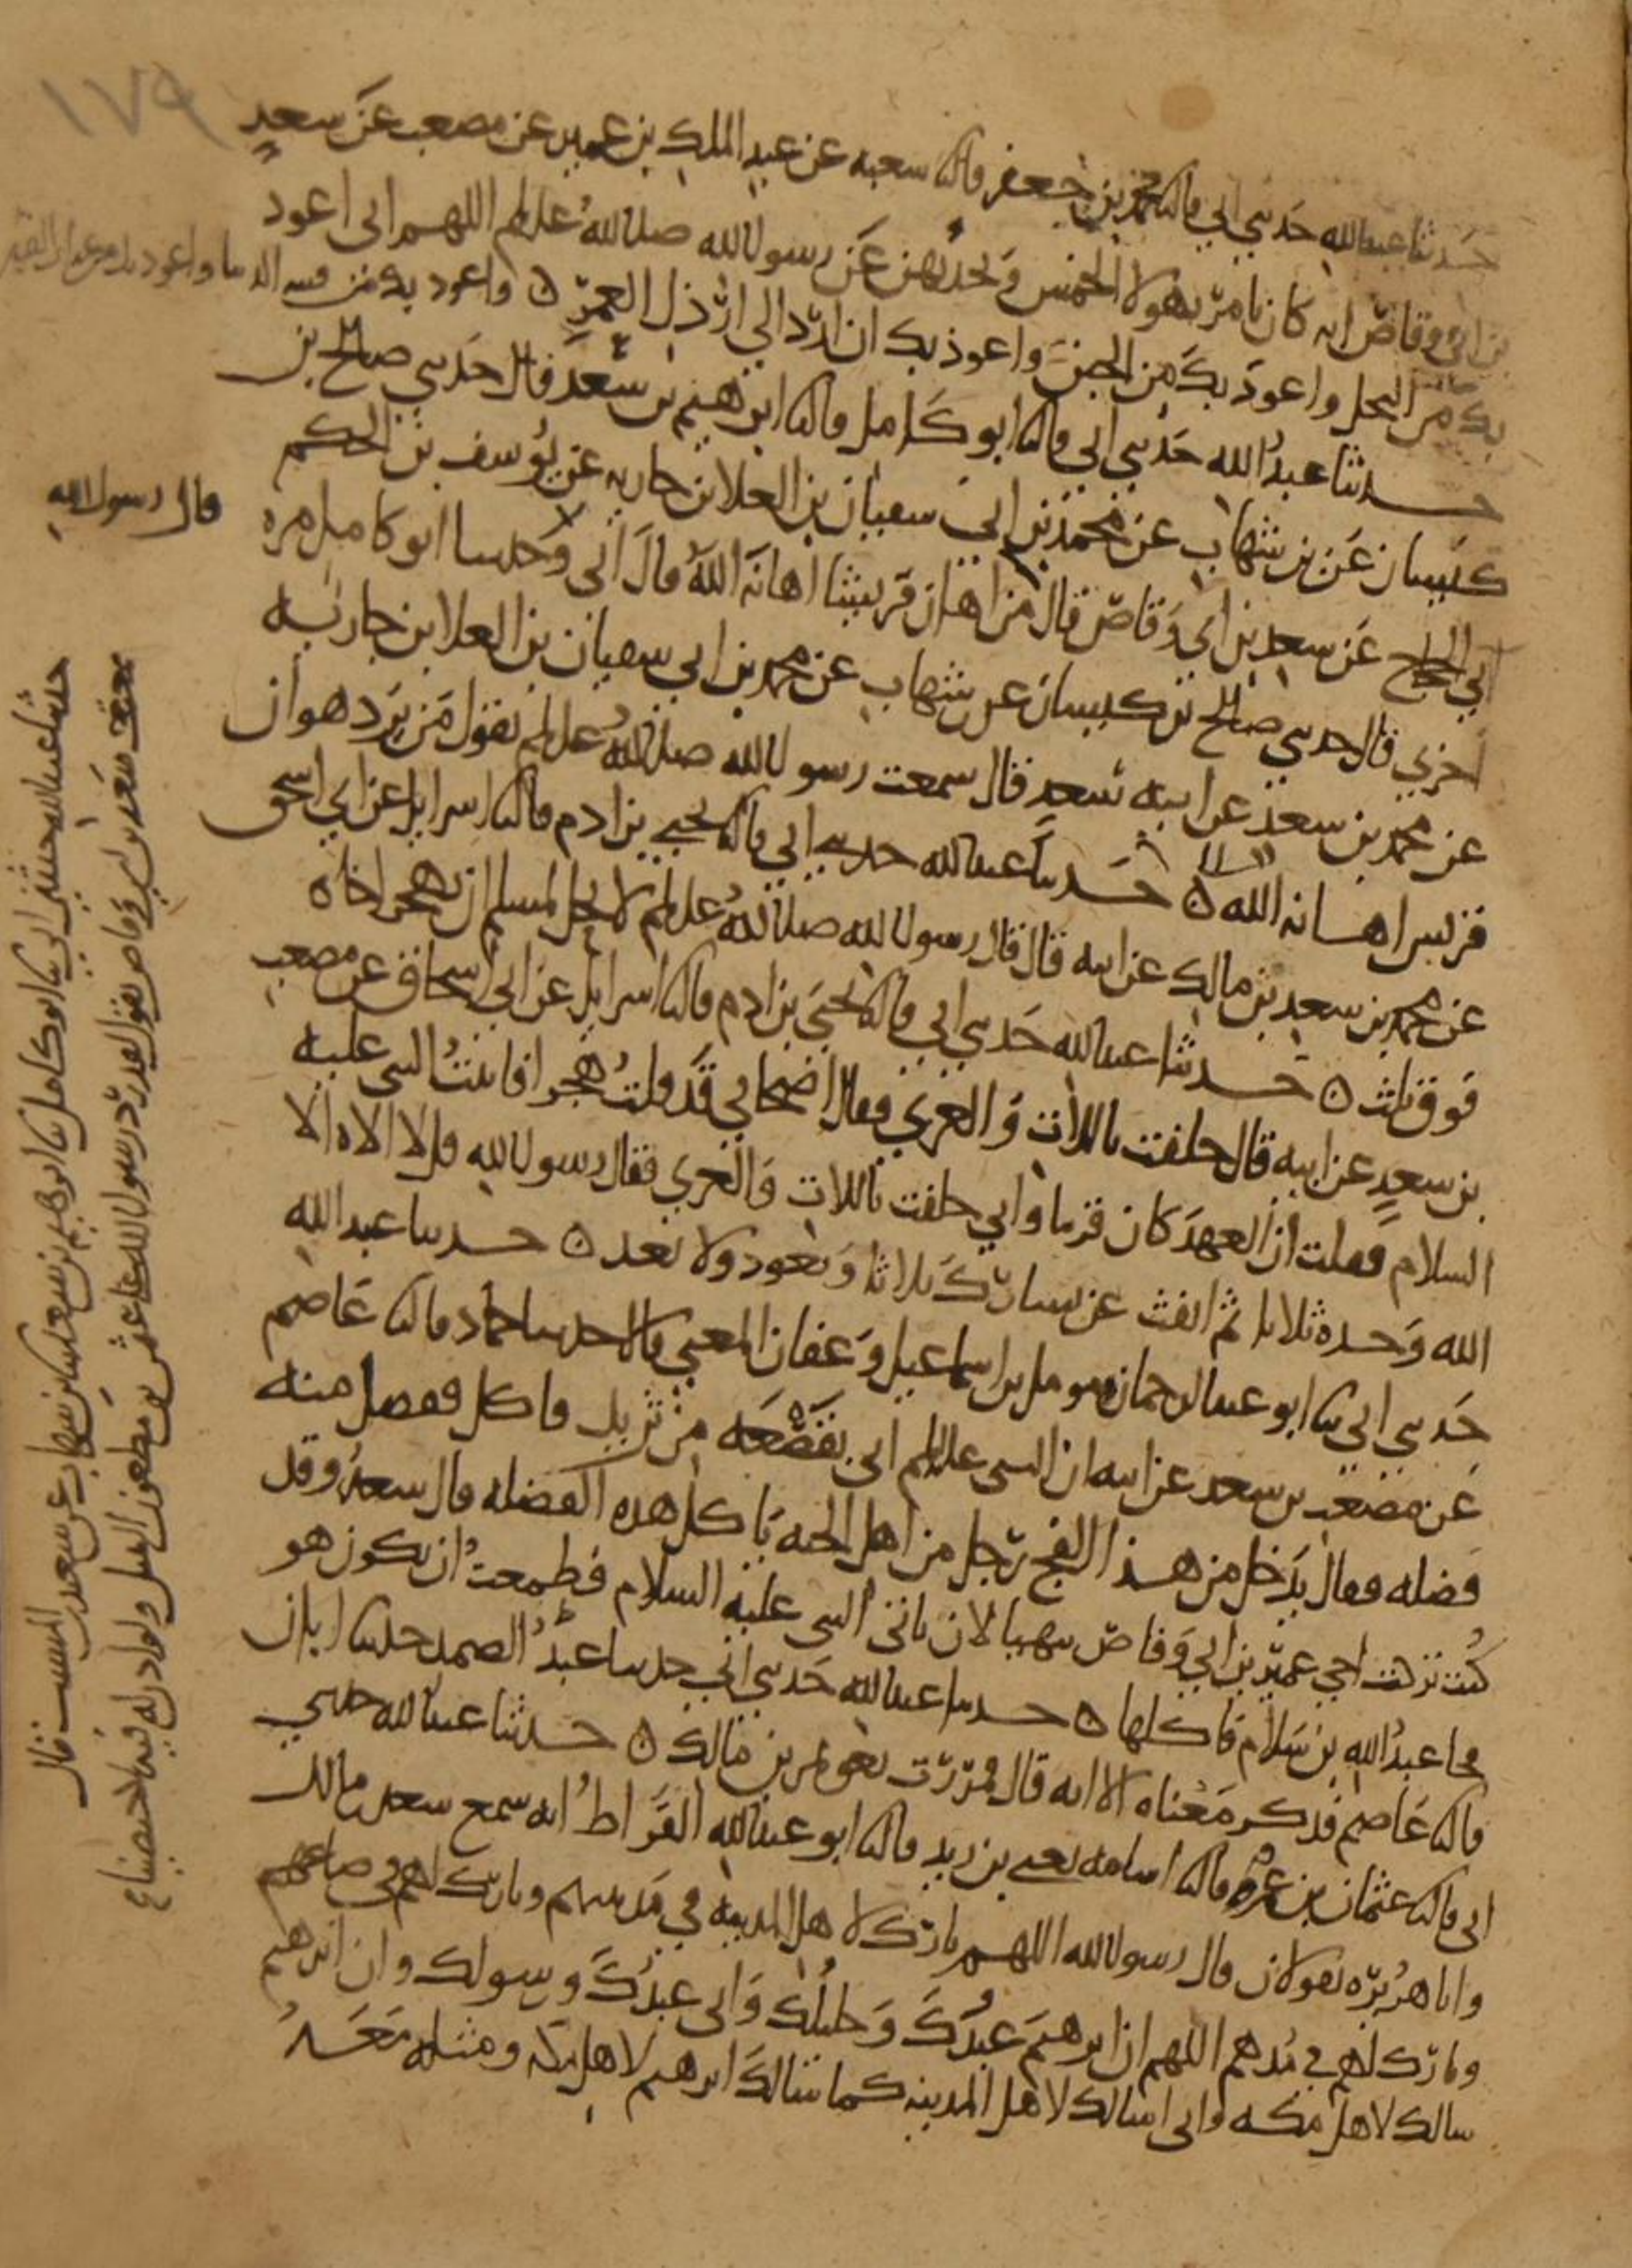 ١٧٩
حدثنا عبدالله حدثني ابي قال ثنا محمد بن جعفر قال ثنا شعبه عن عبد الملك بن عمير عن مصعب عن سعدٍ
بن ابي وقاص انه كان يامر بهولا الخمس ويحدثهن عن رسول الله صلى الله عليه وسلم اللهم اني اعوذ
بك من البخل واعوذ بك من الجبن واعوذ بك ان ارد الي ارذل العمر ۞ واعوذ بك من فتنه الدنيا واعوذ بك من عذاب القبر
حدثنا عبدُالله حدثني ابي قال ثنا ابو كامل قال ثنا ابرهيم بن سعد قال حدثني صالح بن
كيسان عن بن شهاب عن محمد بن ابي سفيان بن العلا بن جاريه عن يوسف بن الحكم
ابي الحجاج عن سعد بن ابي وقاص قال من اهان قريشا اهانه الله قال ابي وحدثنا ابو كامل مره
قال رسول الله
اخري قال حدثني صالح بن كيسان عن بن شهاب عن محمد بن ابي سفيان بن العلا بن جاريه
عن محمد بن سعد عن ابيه سعدٍ قال سمعت رسول الله صلى الله عليه وسلم يقول من يرد هوان
قريش اهانه الله ۞ حدثنا عبدالله حدثني ابي قال ثنا يحيي بن ادم قال ثنا اسرايل عن ابي اسحق
عن محمد بن سعد بن مالك عن ابيه قال قال رسول الله صلى الله عليه وسلم لا يحل لمسلم ان يهجر اخاه
فوق ثلث ۞ حدثنا عبدالله حدثني ابي قال ثنا يحيي بن ادم قال ثنا اسرايل عن ابي اسحاق عن مصعبِ
بن سعدٍ عن ابيه قال حلفت باللات والعزي فقال اصحابي قد قلت هجرا فاتيتُ النبي عليه
السلام فقلت ان العهد كان قريبا واني حلفت باللات والعزي فقال رسول الله قل لا الاه الا
الله وحده ثلاثا ثم انفث عن يسارك ثلاثا وتعوذ ولا تعد ۞ حدثنا عبد الله
حدثني ابي ثنا ابو عبدالرحمان مومل بن اسماعيل وعفان المعني قالا حدثنا حماد قال ثنا عاصم
عن مصعب بن سعد عن ابيه ان النبي عليه السلم اتي بقصعه من ثريد فاكل ففضل منه
فضله فقال يدخل من هذا الفج رجل من اهل الجنه ياكل هذه الفضله قال سعدٌ وقد
كنت تركت اخي عمير بن ابي وقاص يتهيا لان ياتي النبي عليه السلام فطمعتُ ان يكون هو
فجا عبدُالله بن سلام فاكلها ۞ حدثنا عبدالله حدثني ابي حدثنا عبدُ الصمد حدثنا ابان
قال ثنا عاصم فذكر معناه الا انه قال فمررت بعويمر بن مالك ۞ حدثنا عبدالله حدثني
ابي قال ثنا عثمان بن عمر قال ثنا اسامه يعني بن زيد قال ثنا ابو عبدالله القراظُ انه سمع سعد بن مالك
وابا هريره يقولان قال رسول الله اللهم بارك لاهل المدينه في مدينتهم وبارك لهم في صاعهم
وبارك لهم في مدهم اللهم ان ابرهيم عبدُك وخليلُك واني عبدُك ورسولك وان ابرهيم
سالك لاهل مكه واني اسالك لاهل المدينه كما سالك ابرهيم لاهل مكه ومثله معهُ
حدثنا عبدالله حدثني ابي ثنا ابو كامل ثنا ابرهيم بن سعد ثنا بن شهاب عن سعيد بن المسيب قال
سمعت سعد بن ابي وقاص يقول لقد رد رسول الله على عثمن بن مظعون التبتل ولو اذن له فيه لاختصينا